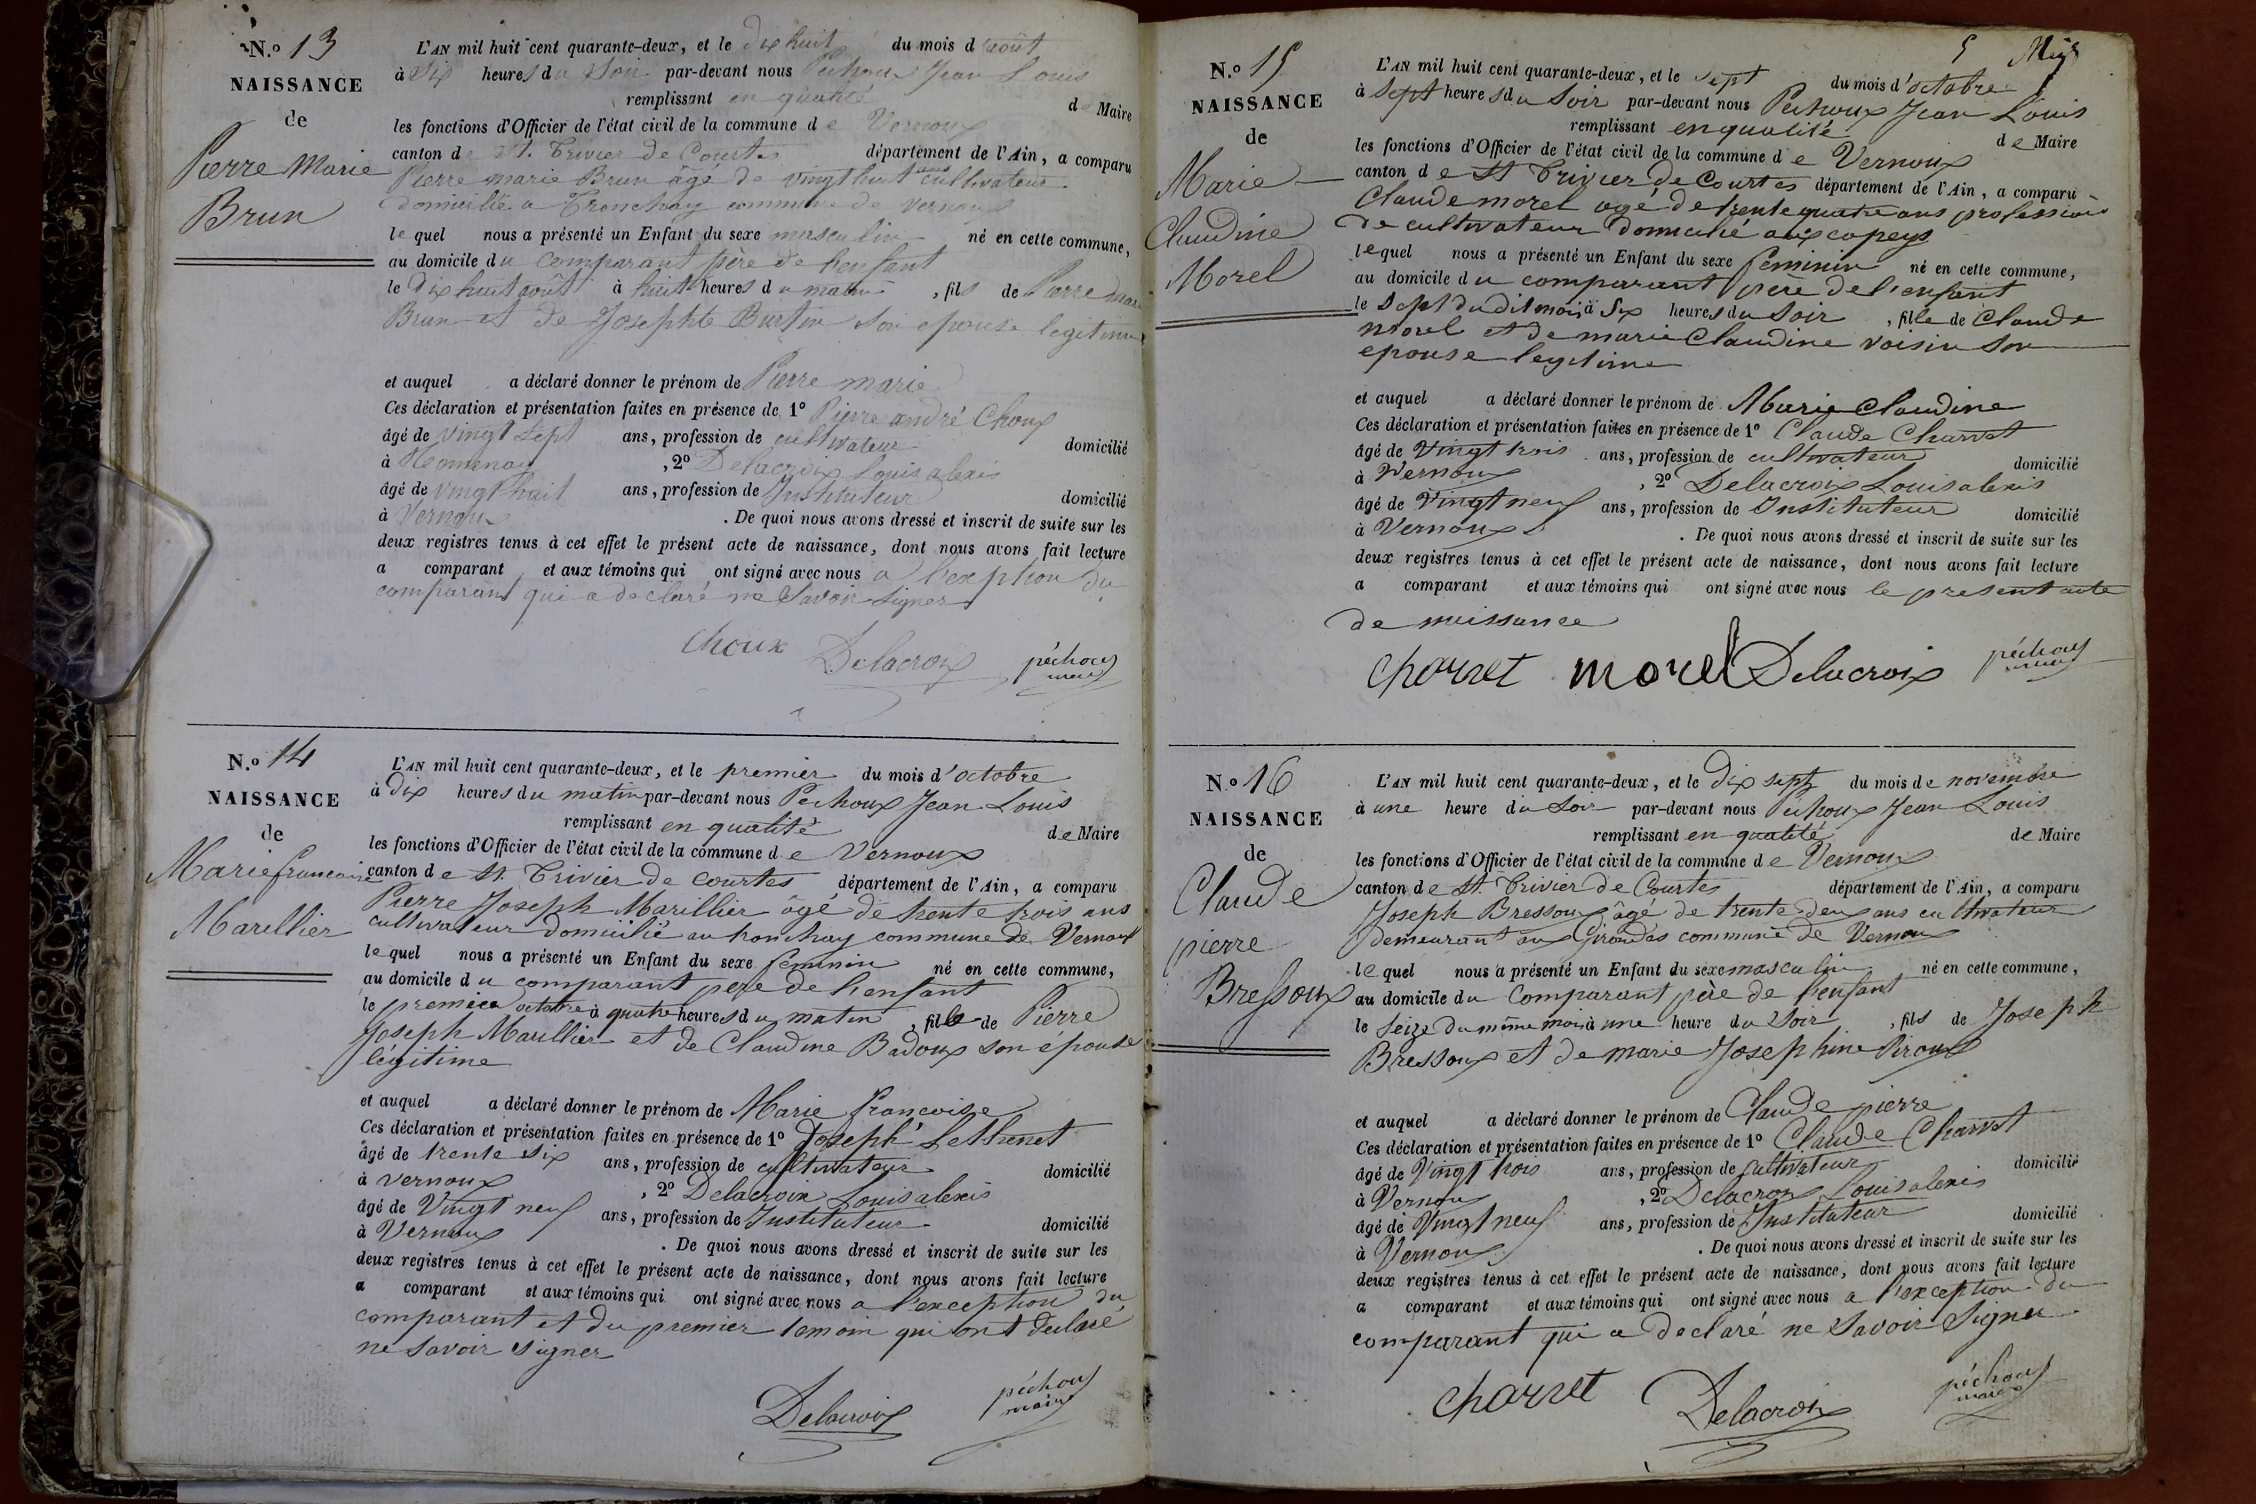 N.o 13
NAISSANCE
de
Pierre Marie
Brun
L'AN mil huit cent quarante-deux, et le dix huit du mois d'août
à Six heures du Soir par-devant nous Péchoux Jean Louis
remplissant en qualité de Maire
les fonctions d'Officier de l'état civil de la commune de Vernoux
canton de St. Trivier de Courtes département de l'Ain, a comparu
Pierre marie Brun âgé de vingt huit ans cultivateur
domicilié a Tronchay commune de Vernoux
lequel nous a présenté un Enfant du sexe masculin né en cette commune,
au domicile du comparant père de l'enfant
le dix huit août à huit heures du matin, fils de Pierre marie
Brun et de Josephte Burtin son epouse legitime
et auquel a déclaré donner le prénom de Pierre marie
Ces déclaration et présentation faites en présence de 1o Pierre andré Choux
âgé de vingt sept ans, profession de cultivateur domicilié
à Romenay, 2o Delacroix Louis alexis
âgé de vingt huit ans, profession de Instituteur domicilié
à Vernoux. De quoi nous avons dressé et inscrit de suite sur les
deux registres tenus à cet effet le présent acte de naissance, dont nous avons fait lecture
a comparant et aux témoins qui ont signé avec nous a l'exption du
comparant qui a declaré ne Savoir Signer
Choux Delacroix péchoux
maire
N.o 14
NAISSANCE
de
Marie francoise
Marillier
L'AN mil huit cent quarante-deux, et le premier du mois d'octobre
à dix heures du matin par-devant nous Pechoux Jean Louis
remplissant en qualité de Maire
les fonctions d'Officier de l'état civil de la commune de Vernoux
canton de St. Trivier de Courtes département de l'Ain, a comparu
Pierre Joseph Marillier âgé de trente trois ans
cultivateur domicilié au tronchay commune de Vernoux
lequel nous a présenté un Enfant du sexe feminin né en cette commune,
au domicile du comparant père de l'enfant
le premier octobre à quatre heures du matin, fille de Pierre
Joseph Marillier et de Claudine Badoux son epouse
légitime
et auquel a déclaré donner le prénom de Marie francoise
Ces déclaration et présentation faites en présence de 1o Joseph Lethenet
âgé de trente six ans, profession de cultivateur domicilié
à vernoux, 2o Delacroix Louis alexis
âgé de Vingt neuf ans, profession de Instituteur domicilié
à Vernoux. De quoi nous avons dressé et inscrit de suite sur les
deux registres tenus à cet effet le présent acte de naissance, dont nous avons fait lecture
a comparant et aux témoins qui ont signé avec nous a l'exception du
comparant et du premier temoin qui ont declaré
ne savoir signer
Delacroix péchoux
maire
5
N.o 15
NAISSANCE
de
Marie
Claudine
Morel
L'AN mil huit cent quarante-deux, et le sept du mois d'octobre
à Sept heures du Soir par-devant nous Pechoux Jean Louis
remplissant en qualité de Maire
les fonctions d'Officier de l'état civil de la commune de Vernoux
canton de St Trivier de Courtes département de l'Ain, a comparu
Claude morel agé de trente quatre ans profession
de cultivateur domicilié aux copeys
lequel nous a présenté un Enfant du sexe feminin né en cette commune,
au domicile du comparant père de l'enfant
le Sept du dit mois à Six heures du Soir, fille de Claude
morel et de marie Claudine voisin Son
epouse legitime
et auquel a déclaré donner le prénom de Marie Claudine
Ces déclaration et présentation faites en présence de 1o Claude Charvet
âgé de Vingt trois ans, profession de cultivateur domicilié
à Vernoux, 2o Delacroix Louis alexis
âgé de Vingt neuf ans, profession de Instituteur domicilié
à Vernoux. De quoi nous avons dressé et inscrit de suite sur les
deux registres tenus à cet effet le présent acte de naissance, dont nous avons fait lecture
a comparant et aux témoins qui ont signé avec nous le present acte
de naissance
Charvet morel Delacroix péchoux
maire
N.o 16
NAISSANCE
de
Claude
pierre
Bressoux
L'AN mil huit cent quarante-deux, et le Dix Sept du mois de novembre
à une heure du Soir par-devant nous Péchoux Jean Louis
remplissant en qualité de Maire
les fonctions d'Officier de l'état civil de la commune de Vernoux
canton de St. Trivier de Courtes département de l'Ain, a comparu
Joseph Bressoux âgé de trente deux ans cultivateur
demeurant aux Girondes commune de Vernoux
lequel nous a présenté un Enfant du sexe masculin né en cette commune,
au domicile du Comparant père de l'enfant
le Seize du même mois à une heure du Soir, fils de Joseph
Bressoux et de marie Josephine Piroux
et auquel a déclaré donner le prénom de Claude pierre
Ces déclaration et présentation faites en présence de 1o Claude Charvet
âgé de Vingt trois ans, profession de cultivateur domicilié
à Vernoux, 2o Delacroix Louis alexis
âgé de Vingt neuf ans, profession de Instituteur domicilié
à Vernoux. De quoi nous avons dressé et inscrit de suite sur les
deux registres tenus à cet effet le présent acte de naissance, dont nous avons fait lecture
a comparant et aux témoins qui ont signé avec nous a l'exception du
comparant qui a declaré ne Savoir Signer
Charvet Delacroix péchoux
maire